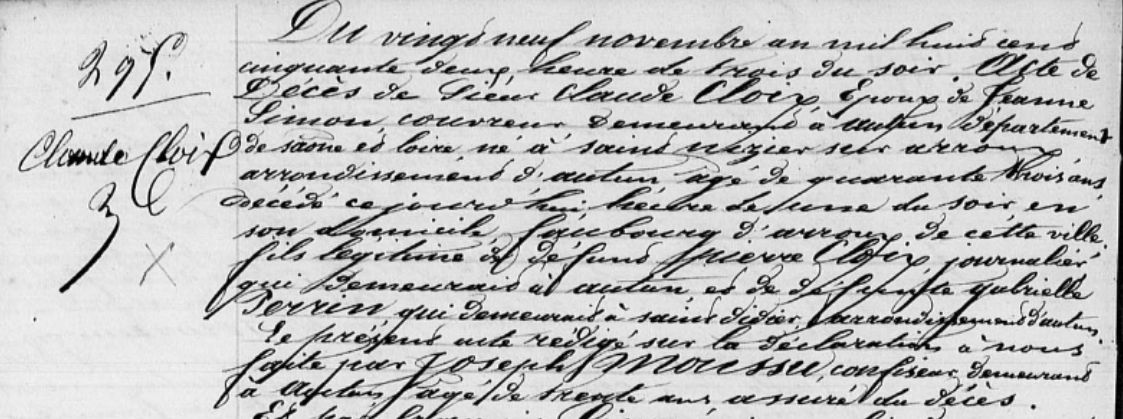 295.
Claude Cloix
Du vingt neuf novembre an mil huit cent
cinquante deux, heure de trois du soir. Acte de
Décès de Sieur Claude Cloix, Epoux de Jeanne
Simon couvreur Demeurant à autun département
de saône et loire né à saint nizier sur arroux
arrondissement d'autun agé de quarante trois ans
décédé ce jourd'hui heure de une du soir en
son domicile faubourg d'arroux de cette ville.
fils légitime de défunt pierre Cloix, journalier
qui Demeurait à autun et de défunte gabrielle
Perrin qui demeurait à saint didier, arrondissement d'autun,
Le présent acte rédigé sur la déclaration à nous
faite par Joseph Moussu, confiseur, demeurant
à Autun agé de trente ans assuré du décès.